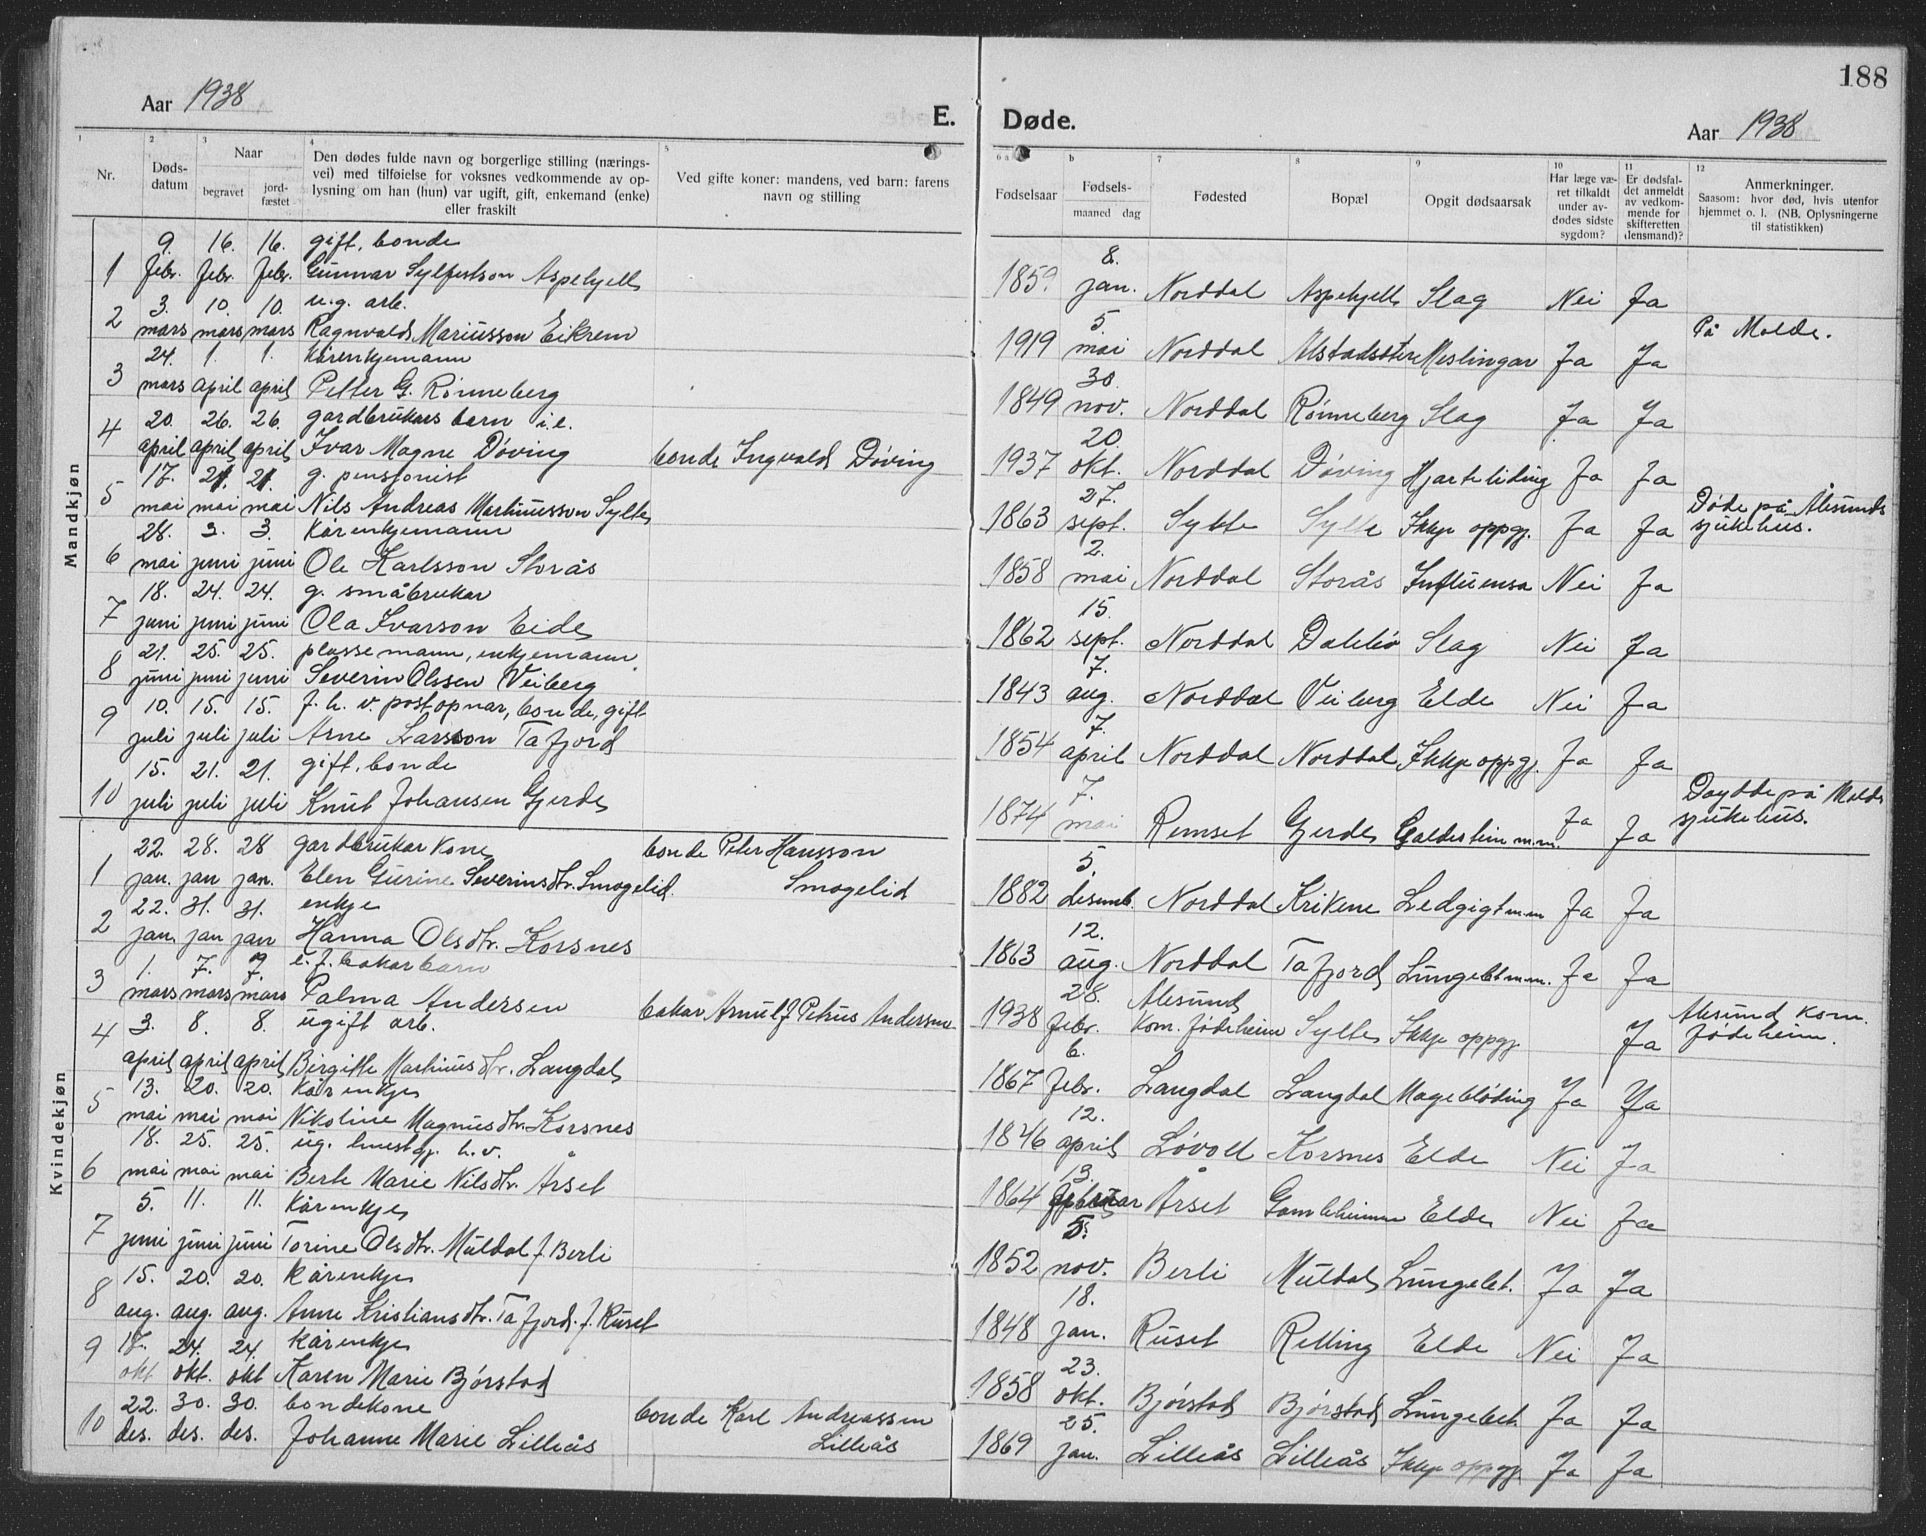 188
Aar 1938
E. Døde.
Aar 1938
1 2 3 4 5 6 a b 7 8 9 10 11 12
Nr.
Døds-
datum
Naar
begravet
jord-
fæstet
Den dødes fulde navn og borgerlige stilling (nærings-
vei) med tilføielse for voksnes vedkommende av op-
lysning om han (hun) var ugift, gift, enkemand (enke)
eller fraskilt
Ved gifte koner: mandens, ved barn: farens
navn og stilling
Fødselsaar
Fødsels-
maaned dag
Fødested
Bopæl
Opgit dødsaarsak
Har læge væ-
ret tilkaldt
under av-
dødes sidste
sygdom?
Er dødsfal-
det anmeldt
av vedkom-
mende for
skifteretten
(lensmand)?
Anmerkninger.
Saasom: hvor død, hvis utenfor
hjemmet o. l. (NB. Oplysningerne
til statistikken)
Mandkjøn
9. 16. 16. gift, bonde 8.
1 febr. febr. febr. Gunnar Sylfestson Aspehjell 1859 jan. Norddal Aspehjell Slag Nei Ja
3. 10. 10. u.g. arb. 5. På Molde.
2 mars mars mars Ragnvald Mariusson Eikrem 1919 mai Norddal Meslingar Ja Ja
24. 1. 1. Kårenkjemann 30.
3 mars april april Petter G. Rønneberg 1849 nov. Norddal Rønneberg Slag Ja Ja
20. 26. 26. gardbrukars barn i.e. 20.
4 april april april Ivar Magne Døving bonde Ingvald Døving 1937 okt. Norddal Døving Hjarteliding Ja Ja
17. 21. 21. g. pensjonist 27. Døde på Ålesunds
5 mai mai mai Nils Andreas Martinusson Sylte 1863 sept. Sylte Sylte Ikkje oppgj. Ja Ja sjukehus.
28. 3. 3. Kårenkjemann 2.
6 mai juni juni Ole Karlsson Storås 1858 mai Norddal Storås Influensa Nei Ja
18. 24. 24. g. småbrukar 15.
7 juni juni juni Ola Ivarson Eide 1862 sept. Norddal Dalebø Slag Nei Ja
21. 25. 25. plassemann, enkjemann 7.
8 juni juni juni Severin Olssen Veiberg 1843 aug. Norddal Veiberg Elde Nei Ja
10. 15. 15. f. h. v. postopnar, bonde, gift 7.
9 juli juli juli Arne Larsson Tafjord 1854 april Norddal Norddal Ikkje oppgj. Ja Ja
15. 21. 21. gift, bonde 7. Døydde på Molde
10 juli juli juli Knut Johansen Gjerde 1874 mai Remset Gjerde Galdestein m.m. Ja Ja sjukehus.
Kvindekjøn
22. 28. 28 gardbrukar kone bonde Peter Hansson 5.
1 jan. jan jan. Elen Gurine Severinsdtr. Smogelid. Smogelid 1882 desemb. Norddal Krikene Ledgigt m.m Ja Ja
22. 31. 31. enkje 12.
2 jan. jan jan Hanna Olsdtr. Korsnes 1863 aug. Norddal Tafjord Lungebet m.m. Ja Ja
1. 7. 7. e. f. bakarbarn 28. Ålesund Ålesund Kom.
3 mars mars mars Palma Andersen bakar Arnulf Petrus Andersen 1938 febr. Kom. fødeheim Sylte Ikkje oppgj. Ja fødeheim.
3. 8. 8. ugift arb. 6.
4 april april april Birgitte Martinusdtr. Langdal 1867 febr. Langdal Langdal Mageblöding Ja Ja
13. 20. 20. Kårenkje 12.
5 mai mai mai Nikoline Magnusdtr. Korsnes 1846 april Løvoll Korsnes Elde Nei Ja
18. 25. 25. ug. h.v. 13.
6 mai mai mai Berte Marie Nilsdtr. Årset 1864 Årset Gamleheimen Elde Nei Ja
5. 11. 11. Kårenkje 5.
7 juni juni juni Torine Olsdtr. Muldal f. Berli 1852 nov. Berli Muldal Lungebet. Ja Ja
15. 20. 20. Kårenkje 18.
8 aug. aug. aug. Anne Kristiansdtr. Tafjord. f. Ruset 1848 jan. Ruset Relling Elde Nei Ja
17. 24. 24. Kårenkje 23.
9 okt okt. okt Karen Marie Bjørstad 1858 okt. Bjørstad Bjørstad Lungebet. Ja Ja
22. 30. 30. bondekone bonde Karl Andreassen 25.
10 des. des. des. Johanne Marie Lilleås Lilleås 1869 jan. Lilleås Lilleås Ikkje oppgj. Ja Ja